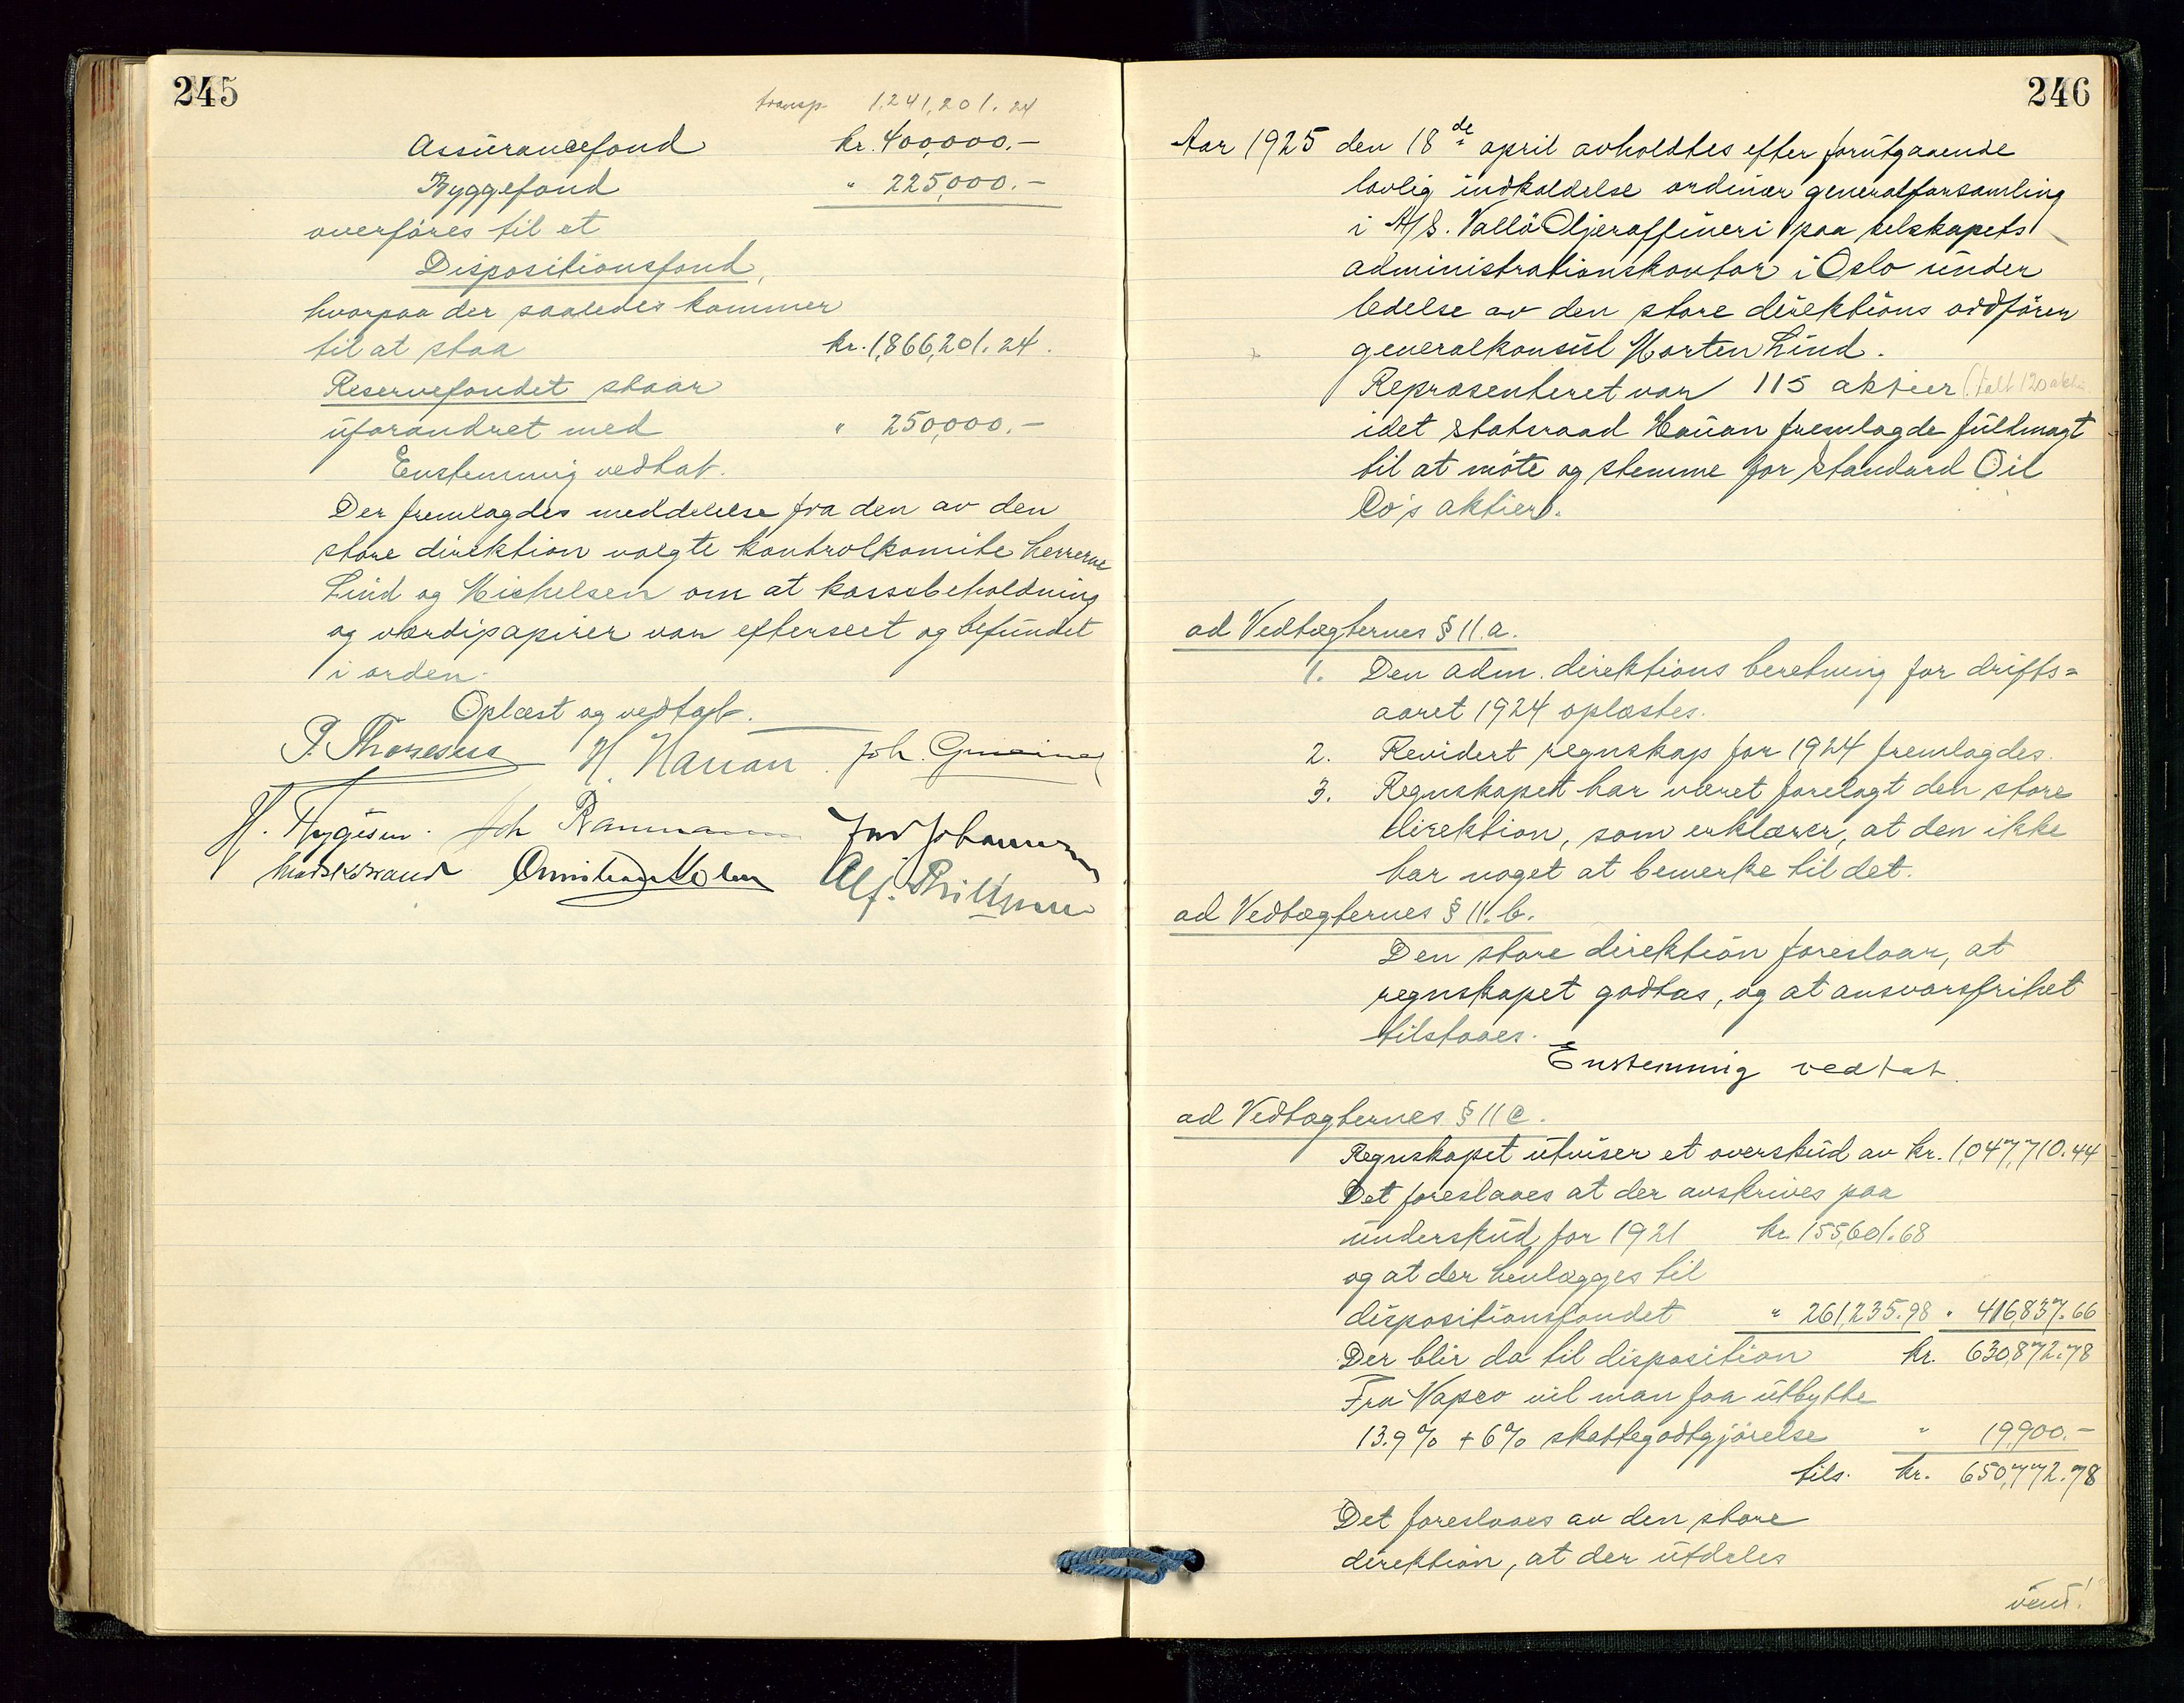 245
transp. 1,241,201.24
Assurancefond kr. 400,000.-
Byggefond " 225,000.-
overføres til et
Dispositionsfond,
hvorpaa der saaledes kommer
til at staa kr. 1,866,201.24.
Reservefondet staar
uforandret med " 250,000.-
Enstemmig vedtat.
Der fremlagdes meddelelse fra den av den
store direktion valgte kontrolkomite herrerne
Lind og Michelsen om at kassebeholdning
og værdipapirer var efterseet og befundet
i orden.
Oplæst og vedtat.
P. Thoresen H. Hauan Joh.
H. Thygesen. Joh Rammann Johannesen
Christian Holm Alf.
246
Aar 1925 den 18de april avholdtes efter forutgaaende
lovlig indkaldelse ordinær generalforsamling
i A/S. Vallö Oljeraffineri paa selskapets
administrationskontor i Oslo under
ledelse av den store direktions ordfører
generalkonsul Morten Lind.
Repræsenteret var 115 aktier (talt 120 aktier
idet statsraad Hauan fremlagde fuldmagt
til at møte og stemme for Standard Oil
Co's aktier).
ad Vedtægternes § 11.a.
1. Den adm. direktions beretning for drifts=
aaret 1924 oplæstes.
2. Revidert regnskap for 1924 fremlagdes.
3. Regnskapet har været forelagt den store
direktion, som erklærer, at den ikke
har noget at bemerke til det.
ad Vedtægternes § 11.b.
Den store direktion foreslaar, at
regnskapet godtas, og at ansvarsfrihet
tilstaaes.
Enstemmig vedtat.
ad Vedtægternes § 11 c.
Regnskapet utviser et overskud av kr. 1,047,710.44
Det foreslaaes at der avskrives paa
underskud for 1921 kr. 155,601.68
og at der henlægges til
dispositionsfondet " 261,235.98 " 416,837.66
Der blir da til disposition kr. 630,872.78
Fra Vapco vil man faa utbytte
13.9% + 6% skattegodtgjørelse " 19,900.-
tils. kr. 650,772.78
Det foreslaaes av den store
direktion, at der utdeles
vend!